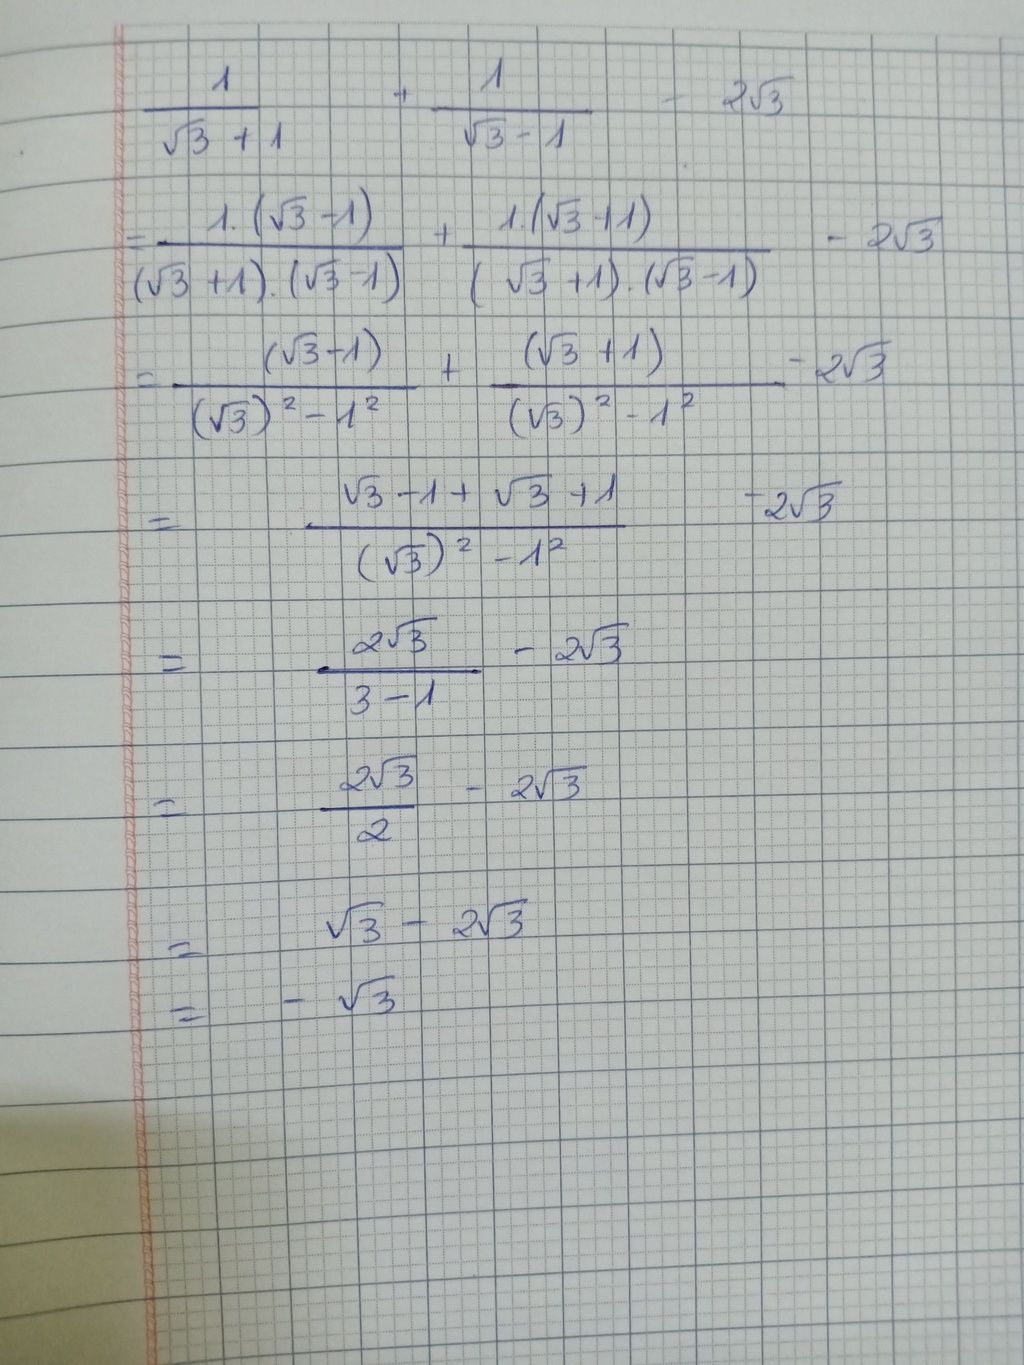 1/(√3 + 1) + 1/(√3 - 1) - 2√3
= 1.(√3 - 1)/((√3 + 1).(√3 - 1)) + 1.(√3 + 1)/((√3 + 1).(√3 - 1)) - 2√3
= (√3 - 1)/((√3)² - 1²) + (√3 + 1)/((√3)² - 1²) - 2√3
= (√3 - 1 + √3 + 1)/((√3)² - 1²) - 2√3
= 2√3/(3 - 1) - 2√3
= 2√3/2 - 2√3
= √3 - 2√3
= - √3